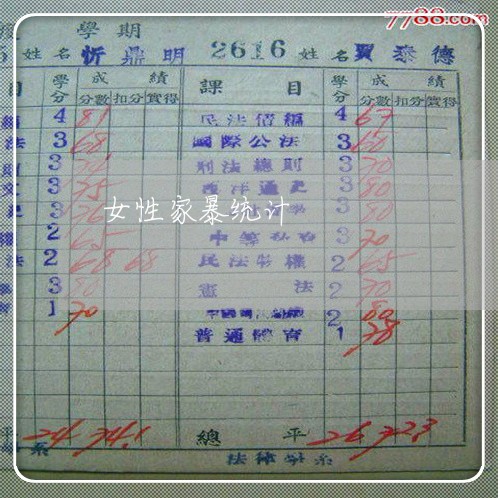 7788.com
學期
姓名 忻鼎明 2616 姓名 賈泰德
目 學分 成績 課目 學分 成績
分數 扣分 實得 分數 扣分 實得
4 81 民法債編 4 67
法 3 68 國際公法 3 60
3 刑法總則 3 70
3 75 西洋通史 3 80
3 3 80
女性家暴统计
2 65 3 70
法 2 68 68 民法物權 2 65
3 憲法 2 70
1 70 2 80
普通體育 1 78
平 24 74.1 總平 26 72.3
系 法律學系